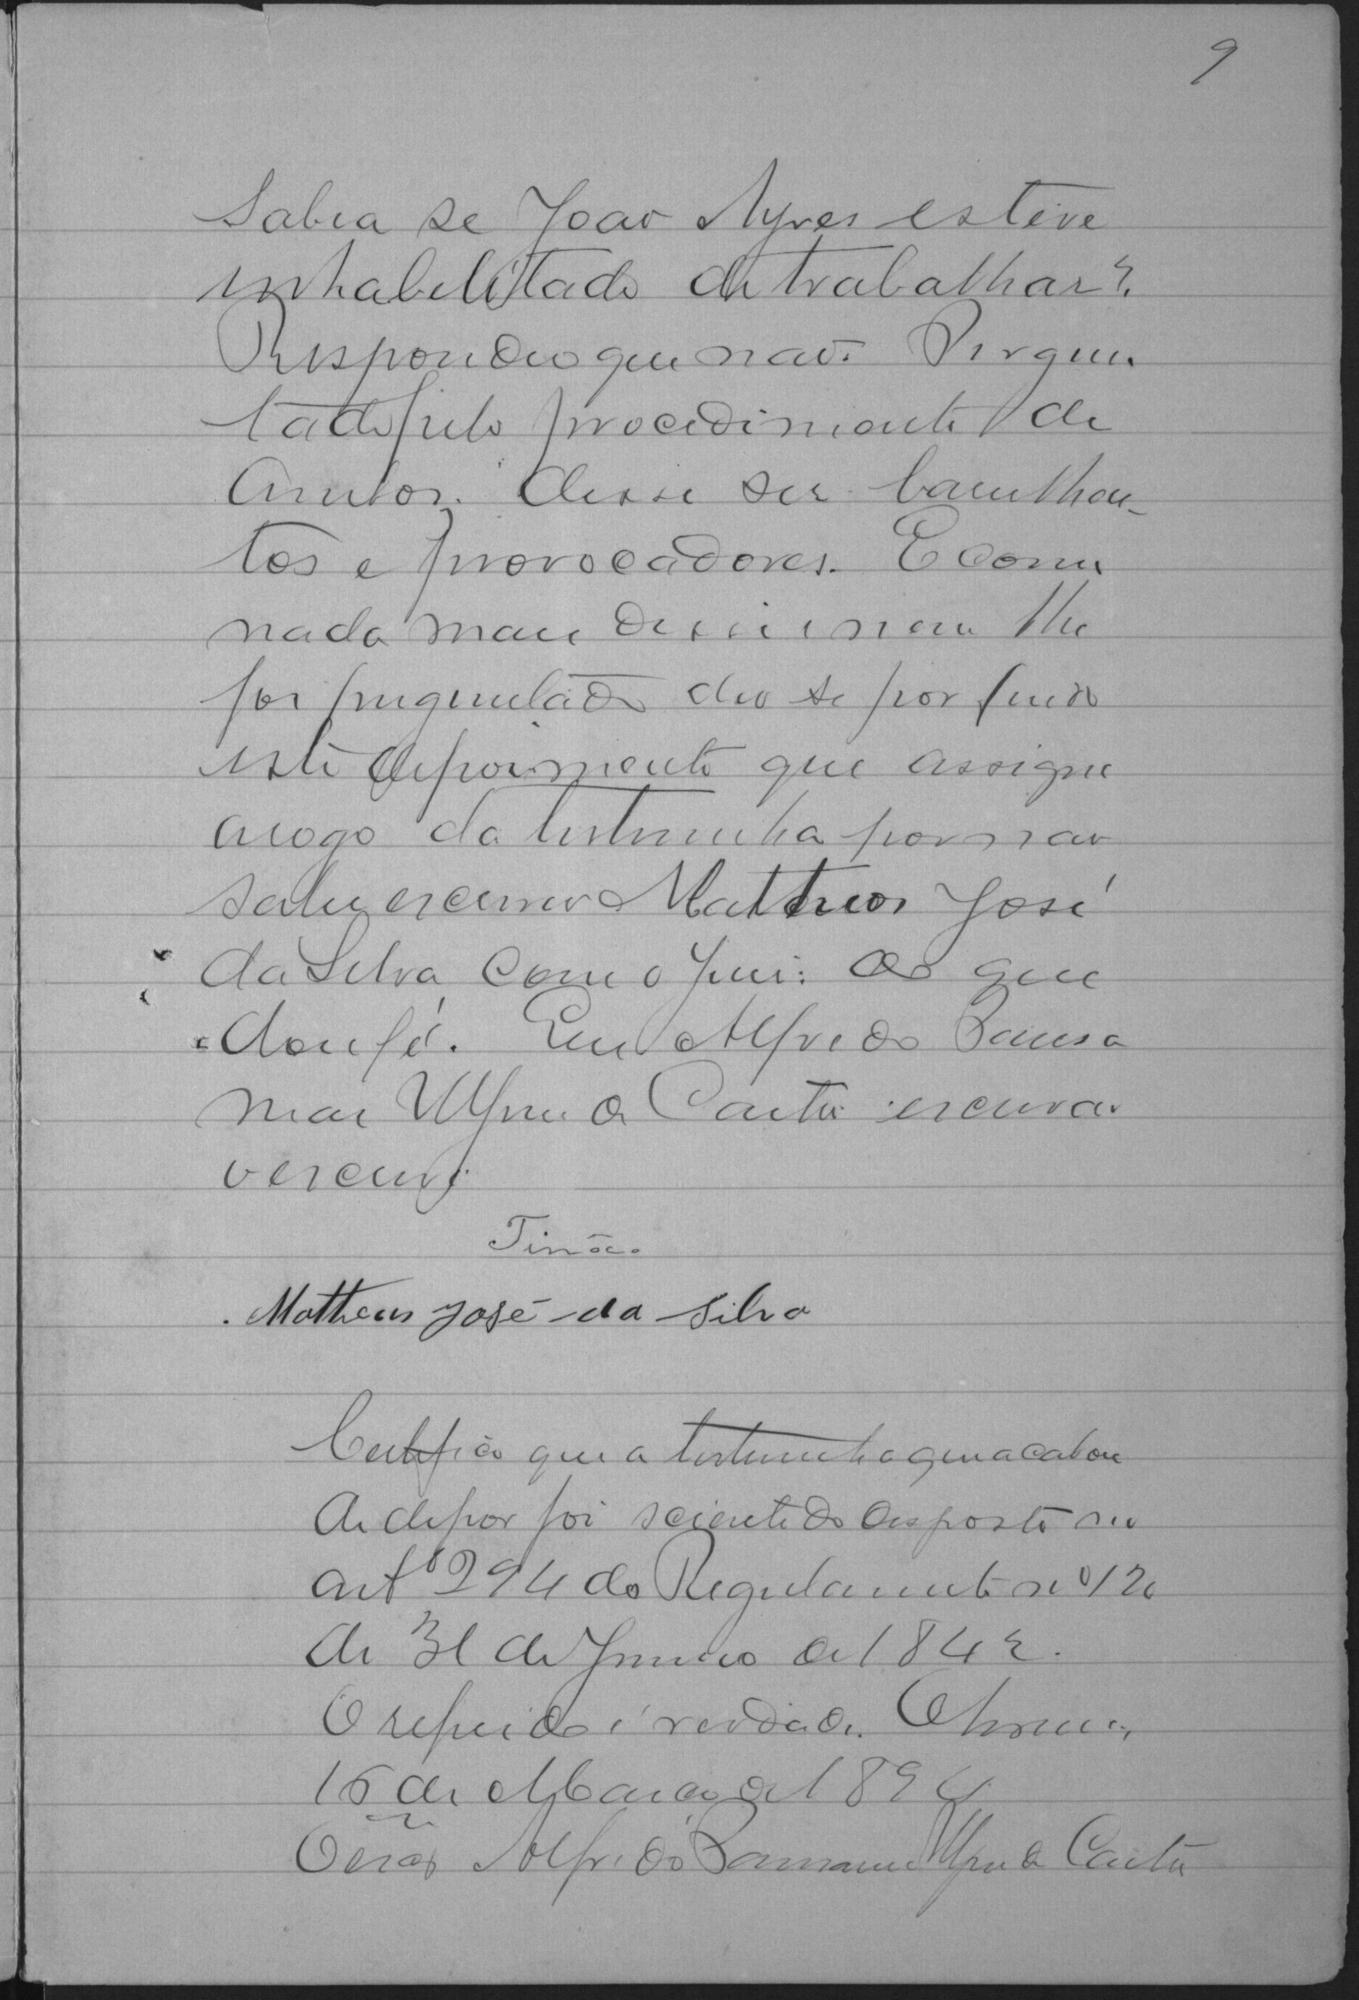 9
Sabia se João Ayres esteve
inhabelitado de trabalhar?
Respondeo que não. Pergun
tado pelo procedimento de
ambos. disse ser barulhen-
tos e provocadores. E como
nada mais disse e nem lhe
foi preguntado deo se por findo
este depoimento que assigna
a rogo da testemunha por não
saber escrever Mattheos José
da Silva com o Juiz: do que
dou fé. Eu Alfredo
escrivão
o escrevi
Tinôco
Matheus José da Silva
Certifico que a testemunha que acabou
de depor foi sciente do desposto no
artº 294 do Regulamento nº 120
de 31 de Janeiro de 1842.
O referido é verdade.
15 de Março de 1894
O esc.ão Alfredo